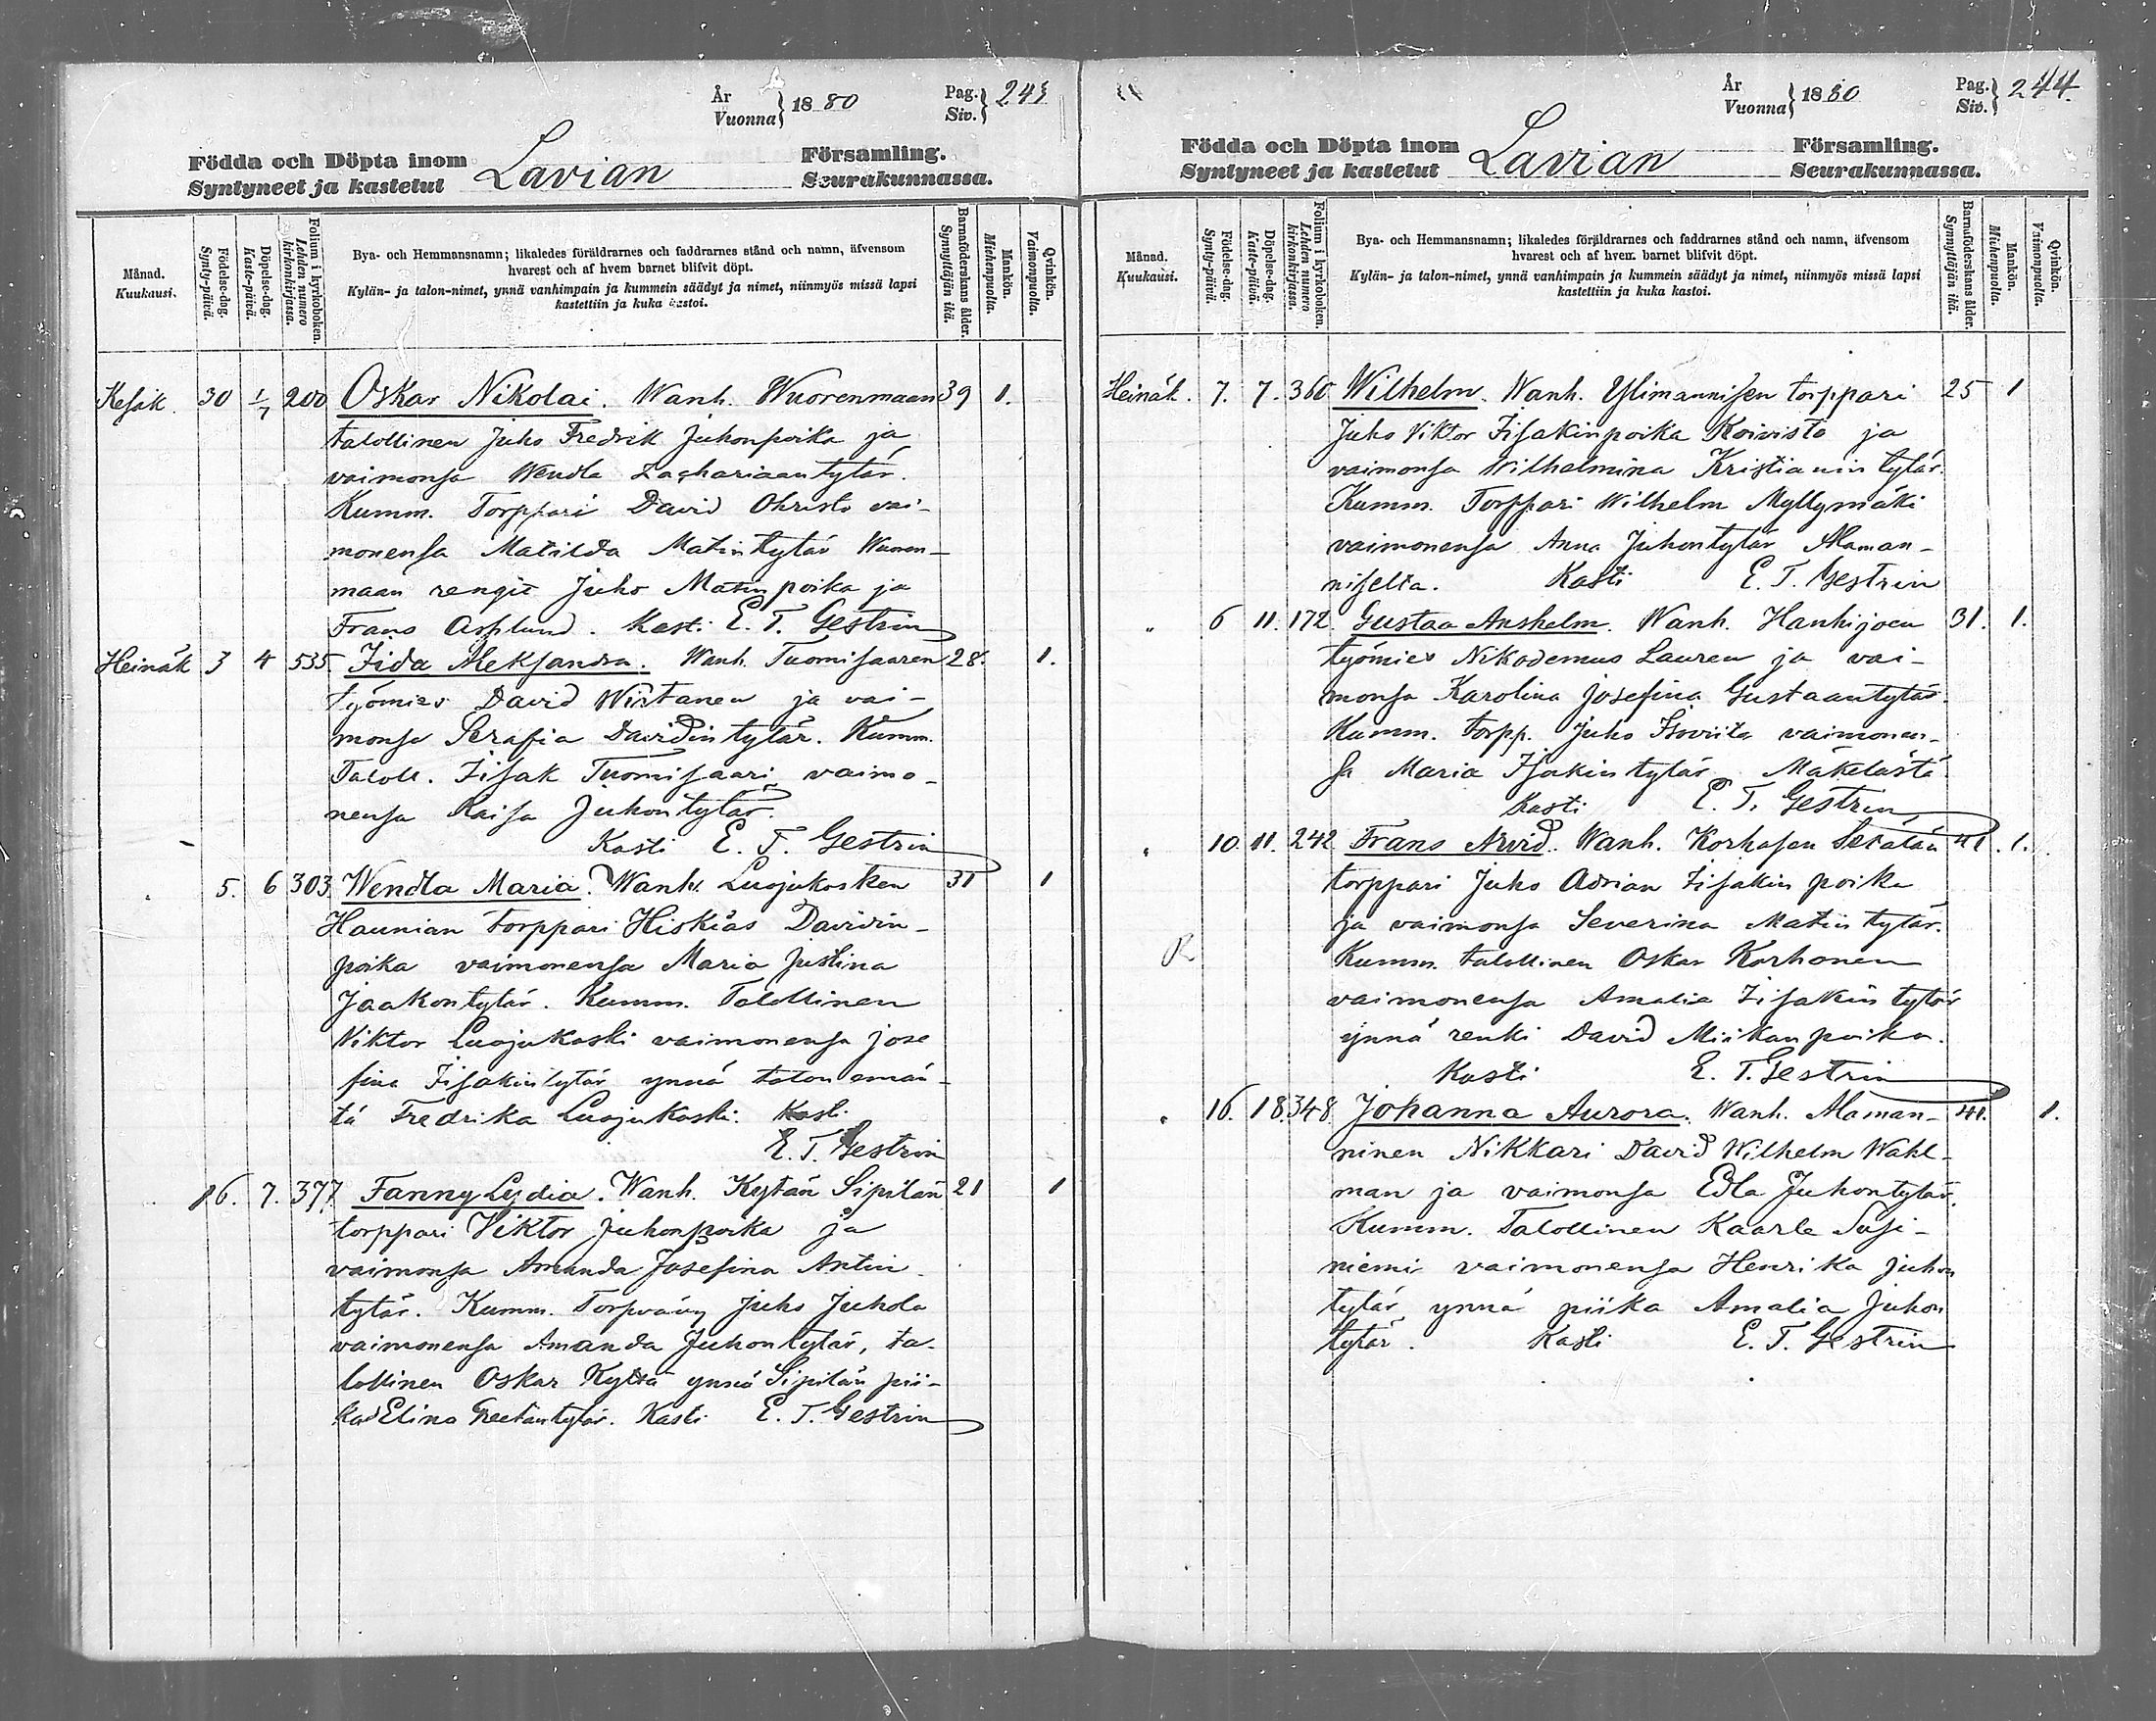 År
Vuonna } 18 80
Pag.
Siv. } 243
Födda och Döpta inom
Syntyneet ja kastetut
Lavian
Församling.
Seurakunnassa.
Månad.
Kuukausi.
Födelse-dag.
Synty-päivä.
Döpelse-dag.
Kaste-päivä.
Folium i kyrkoboken.
Lehden numero
kirkonkirjassa.
Bya- och Hemmansnamn; likaledes föräldrarnes och faddrarnes stånd och namn, äfvensom
hvarest och af hvem barnet blifvit döpt.
Kylän- ja talon-nimet, ynnä vanhimpain ja kummein säädyt ja nimet, niinmyös missä lapsi
kastettiin ja kuka kastoi.
Barnaföderskans ålder.
Synnyttäjän ikä.
Mankön.
Miehenpuolta.
Qvinkön.
Vaimonpuolta.
Kesäk. 30 1/7 200 Oskar Nikolai. Wanh. Wuorenmaan 39 1.
talollinen Juho Fredrik Juhonpoika ja
vaimonsa Wendla Zachariaantytär.
Kumm. Torppari David Ohristo vai-
monensa Matilda Matintytär Wuoren-
maan rengit Juho Matinpoika ja
Frans Asplund. Kasti E. T. Gestrin
Heinäk 3 4 535. Iida Aleksandra. Wanh. Tuomisaaren 28. 1.
työmies David Wirtanen ja vai-
monsa Serafia Davidintytär. Kumm.
Taloll. Iisak Tuomisaari vaimo-
nensa Kaisa Juhontytär.
Kasti E. T. Gestrin
5. 6 303. Wendla Maria. Wanh. Luojukosken 31 1
Haunian torppari Hiskias Davidin-
poika vaimonensa Maria Justina
Jaakontytär. Kumm. Talollinen
Viktor Luojukoski vaimonensa Jose
fina Iisakintytär ynnä talon emän-
tä Fredrika Luojukoski. Kasti
E. T. Gestrin
6. 7. 377 Fanny Lydia. Wanh. Kytän Sipilän 21 1
torppari Viktor Juhonpoika ja
vaimonsa Amanda Josefina Antin
tytär. Kumm. Torpvävy Juho Juhola
vaimonensa Amanda Juhontytär, ta-
lollinen Oskar Kyttä ynnä Sipilän pii-
ka Elina Kasti E. T. Gestrin
År
Vuonna } 18 80
Pag.
Siv. } 244.
Födda och Döpta inom
Syntyneet ja kastetut
Lavian
Församling.
Seurakunnassa.
Månad.
Kuukausi.
Födelse-dag.
Synty-päivä.
Döpelse-dag.
Kaste-päivä.
Folium i kyrkoboken.
Lehden numero
kirkonkirjassa.
Bya- och Hemmansnamn; likaledes föräldrarnes och faddrarnes stånd och namn, äfvensom
hvarest och af hvem barnet blifvit döpt.
Kylän- ja talon-nimet, ynnä vanhimpain ja kummein säädyt ja nimet, niinmyös missä lapsi
kastettiin ja kuka kastoi.
Barnaföderskans ålder.
Synnyttäjän ikä.
Mankön.
Miehenpuolta.
Qvinkön.
Vaimonpuolta.
Heinäk. 7. 7. 360 Wilhelm. Wanh. Ylimannisen torppari 25 1
Juho Viktor Iisakinpoika Koivisto ja
vaimonsa Wilhelmina Kristianintytär.
Kumm. Torppari Wilhelm Myllymäki
vaimonensa Anna Juhontytär Alaman-
niselta. Kasti E. T. Gestrin
" 6 11. 172 Gustaa Anshelm. Wanh. Hanhijoen 31. 1.
työmies Nikodemus Lauren ja vai-
monsa Karolina Josefina Gustaantytär.
Kumm. torpp. Juho Isoviita vaimonen-
sa Maria Isakintytär Mäkelästä
Kasti E. T. Gestrin
" 10. 11. 242 Frans Arvid. Wanh. Korhosen Setälän 41. 1.
torppari Juho Adrian Iisakin poika
ja vaimonsa Severina Matintytär.
Kumm. talollinen Oskar Korhonen
vaimonensa Amalia Iisakin tytär
ynnä renki David Miikanpoika.
Kasti E. T. Gestrin
" 16. 18. 348. Johanna Aurora. Wanh. Alaman- 41. 1.
ninen Nikkari David Wilhelm Wahl-
man ja vaimonsa Edla Juhontytär.
Kumm. Talollinen Kaarle Susi-
niemi vaimonensa Henrika Juhon
tytär ynnä piika Amalia Juhon
tytär. Kasti E. T. Gestrin